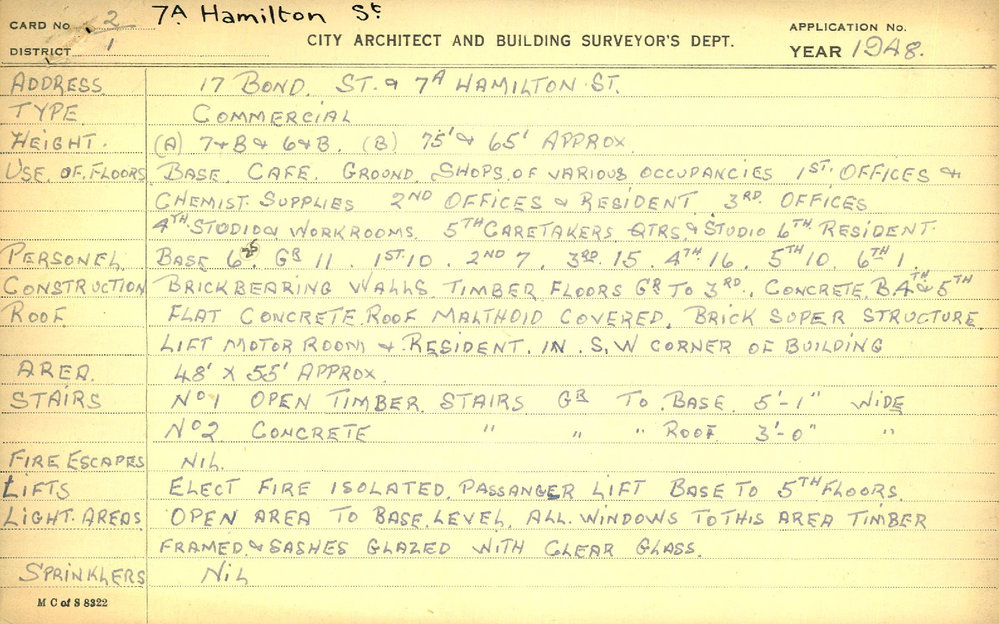 7A Hamilton St
CARD No 2
DISTRICT 1
CITY ARCHITECT AND BUILDING SURVEYOR'S DEPT.
APPLICATION No.
YEAR 1948.
ADDRESS 17 BOND. ST. & 7A HAMILTON ST.
TYPE COMMERCIAL
HEIGHT. (A) 7+B & 6+B. (B) 75' & 65' APPROX.
USE. OF. FLOORS BASE. CAFE. GROUND SHOPS. OF VARIOUS OCCUPANCIES 1ST. OFFICES &
CHEMIST. SUPPLIES 2ND OFFICES & RESIDENT 3RD. OFFICES
4TH. STUDIO & WORKROOMS. 5TH CARETAKERS QTRS. & STUDIO 6TH RESIDENT.
PERSONEL. BASE 6. GR 11. 1ST. 10. 2ND 7. 3RD. 15. 4TH 16. 5TH 10. 6TH 1
CONSTRUCTION BRICKBEARING WALLS. TIMBER FLOORS GR TO 3RD., CONCRETE. B 4TH & 5TH
ROOF. FLAT CONCRETE. ROOF MALTHOID COVERED. BRICK SUPER STRUCTURE.
LIFT MOTOR ROOM & RESIDENT. IN. S.W CORNER OF BUILDING
AREA. 48' X 55' APPROX.
STAIRS No 1 OPEN TIMBER. STAIRS GR TO BASE. 5'-1" WIDE
No 2 CONCRETE " " " ROOF. 3'-0" "
FIRE ESCAPES NIL.
LIFTS ELECT FIRE ISOLATED. PASSANGER LIFT BASE TO 5TH FLOORS.
LIGHT. AREAS OPEN AREA TO BASE. LEVEL. ALL. WINDOWS TO THIS AREA TIMBER
FRAMED. & SASHES GLAZED WITH CLEAR GLASS.
SPRINKLERS NIL
M C of S 8322